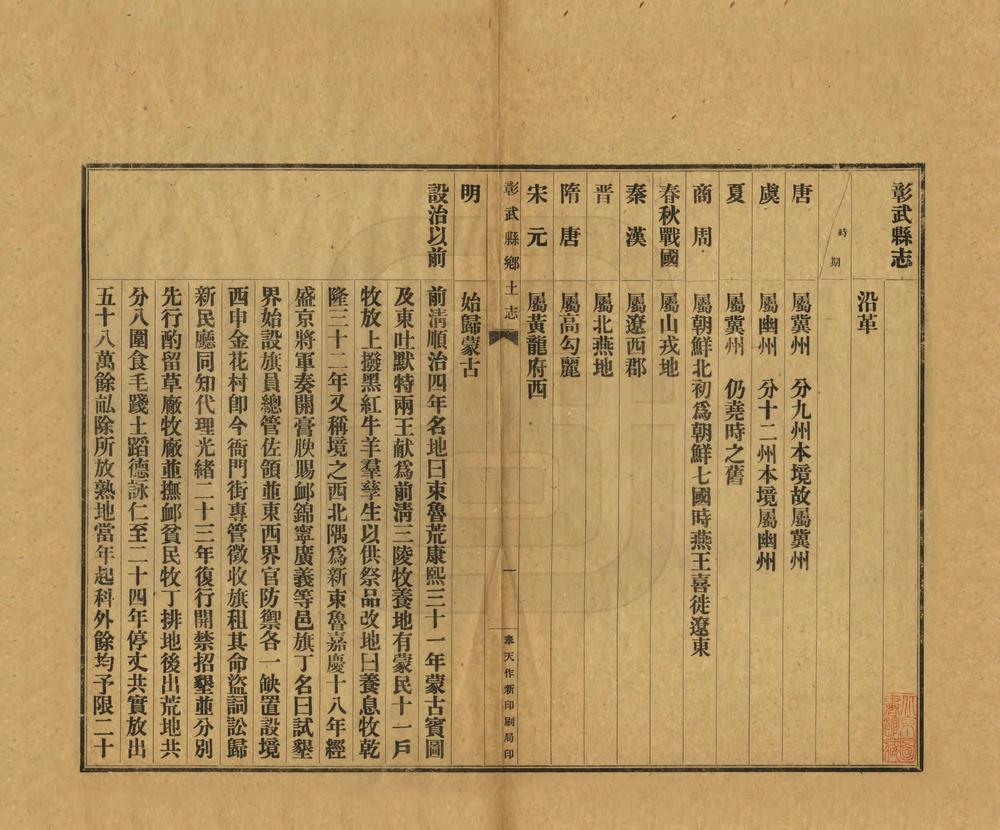 彰武縣志
沿革
時期
唐　屬冀州　分九州本境故屬冀州
虞　屬幽州　分十二州本境屬幽州
夏　屬冀州　仍堯時之舊
商周　屬朝鮮北初爲朝鮮七國時燕王喜徙遼東
春秋戰國　屬山戎地
秦漢　屬遼西郡
晉　屬北燕地
隋唐　屬高勾麗
宋元　屬黃龍府西
彰武縣鄉土志　一　奉天作新印刷局印
明　始歸蒙古
設治以前　前清順治四年名地曰束魯荒康熙三十一年蒙古賓圖
及東吐默特兩王献爲前清三陵牧養地有蒙民十一戶
牧放上撥黑紅牛羊羣孳生以供祭品改地曰養息牧乾
隆三十二年又稱境之西北隅爲新束魯嘉慶十八年經
盛京將軍奏開膏腴賜邺錦寧廣義等邑旗丁名曰試墾
界始設旗員總管佐領並東西界官防禦各一缺置設境
西申金花村卽今衙門街專管徵收旗租其命盜詞訟歸
新民廳同知代理光緒二十三年復行開禁招墾並分別
先行酌留草廠牧廠並撫邺貧民牧丁排地後出荒地共
分八圍食毛踐土蹈德詠仁至二十四年停丈共實放出
五十八萬餘畆除所放熟地當年起科外餘均予限二十